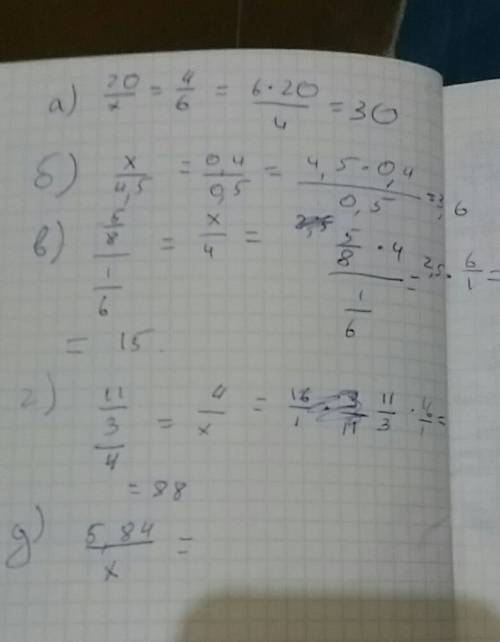 а) 20/x = 4/6 = 6·20/4 = 30
б) x/4,5 = 0,4/0,5 = 4,5·0,4/0,5 = 3,6
в) 5/8 / 1/6 = x/4 = 5/8 · 4 / 1/6 = 2,5 · 6/1 =
= 15.
г) 11/3/4 = 4/x = 11/3 ·
= 88
д) 5,84/x =